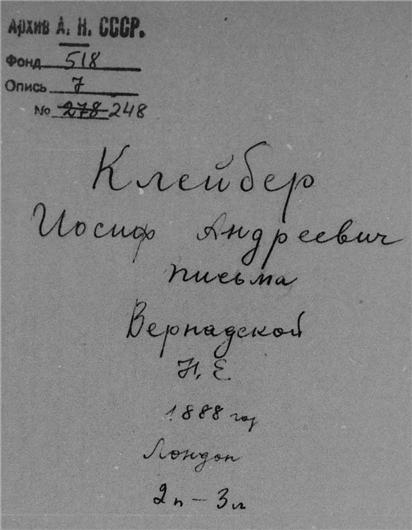 Архив А. Н. СССР.
Фонд 518
Опись 7
№ 278 248
Клейбер
Иосиф Андреевич
письма
Вернадской
Н. Е.
1888 год
Лондон
2п – 3л